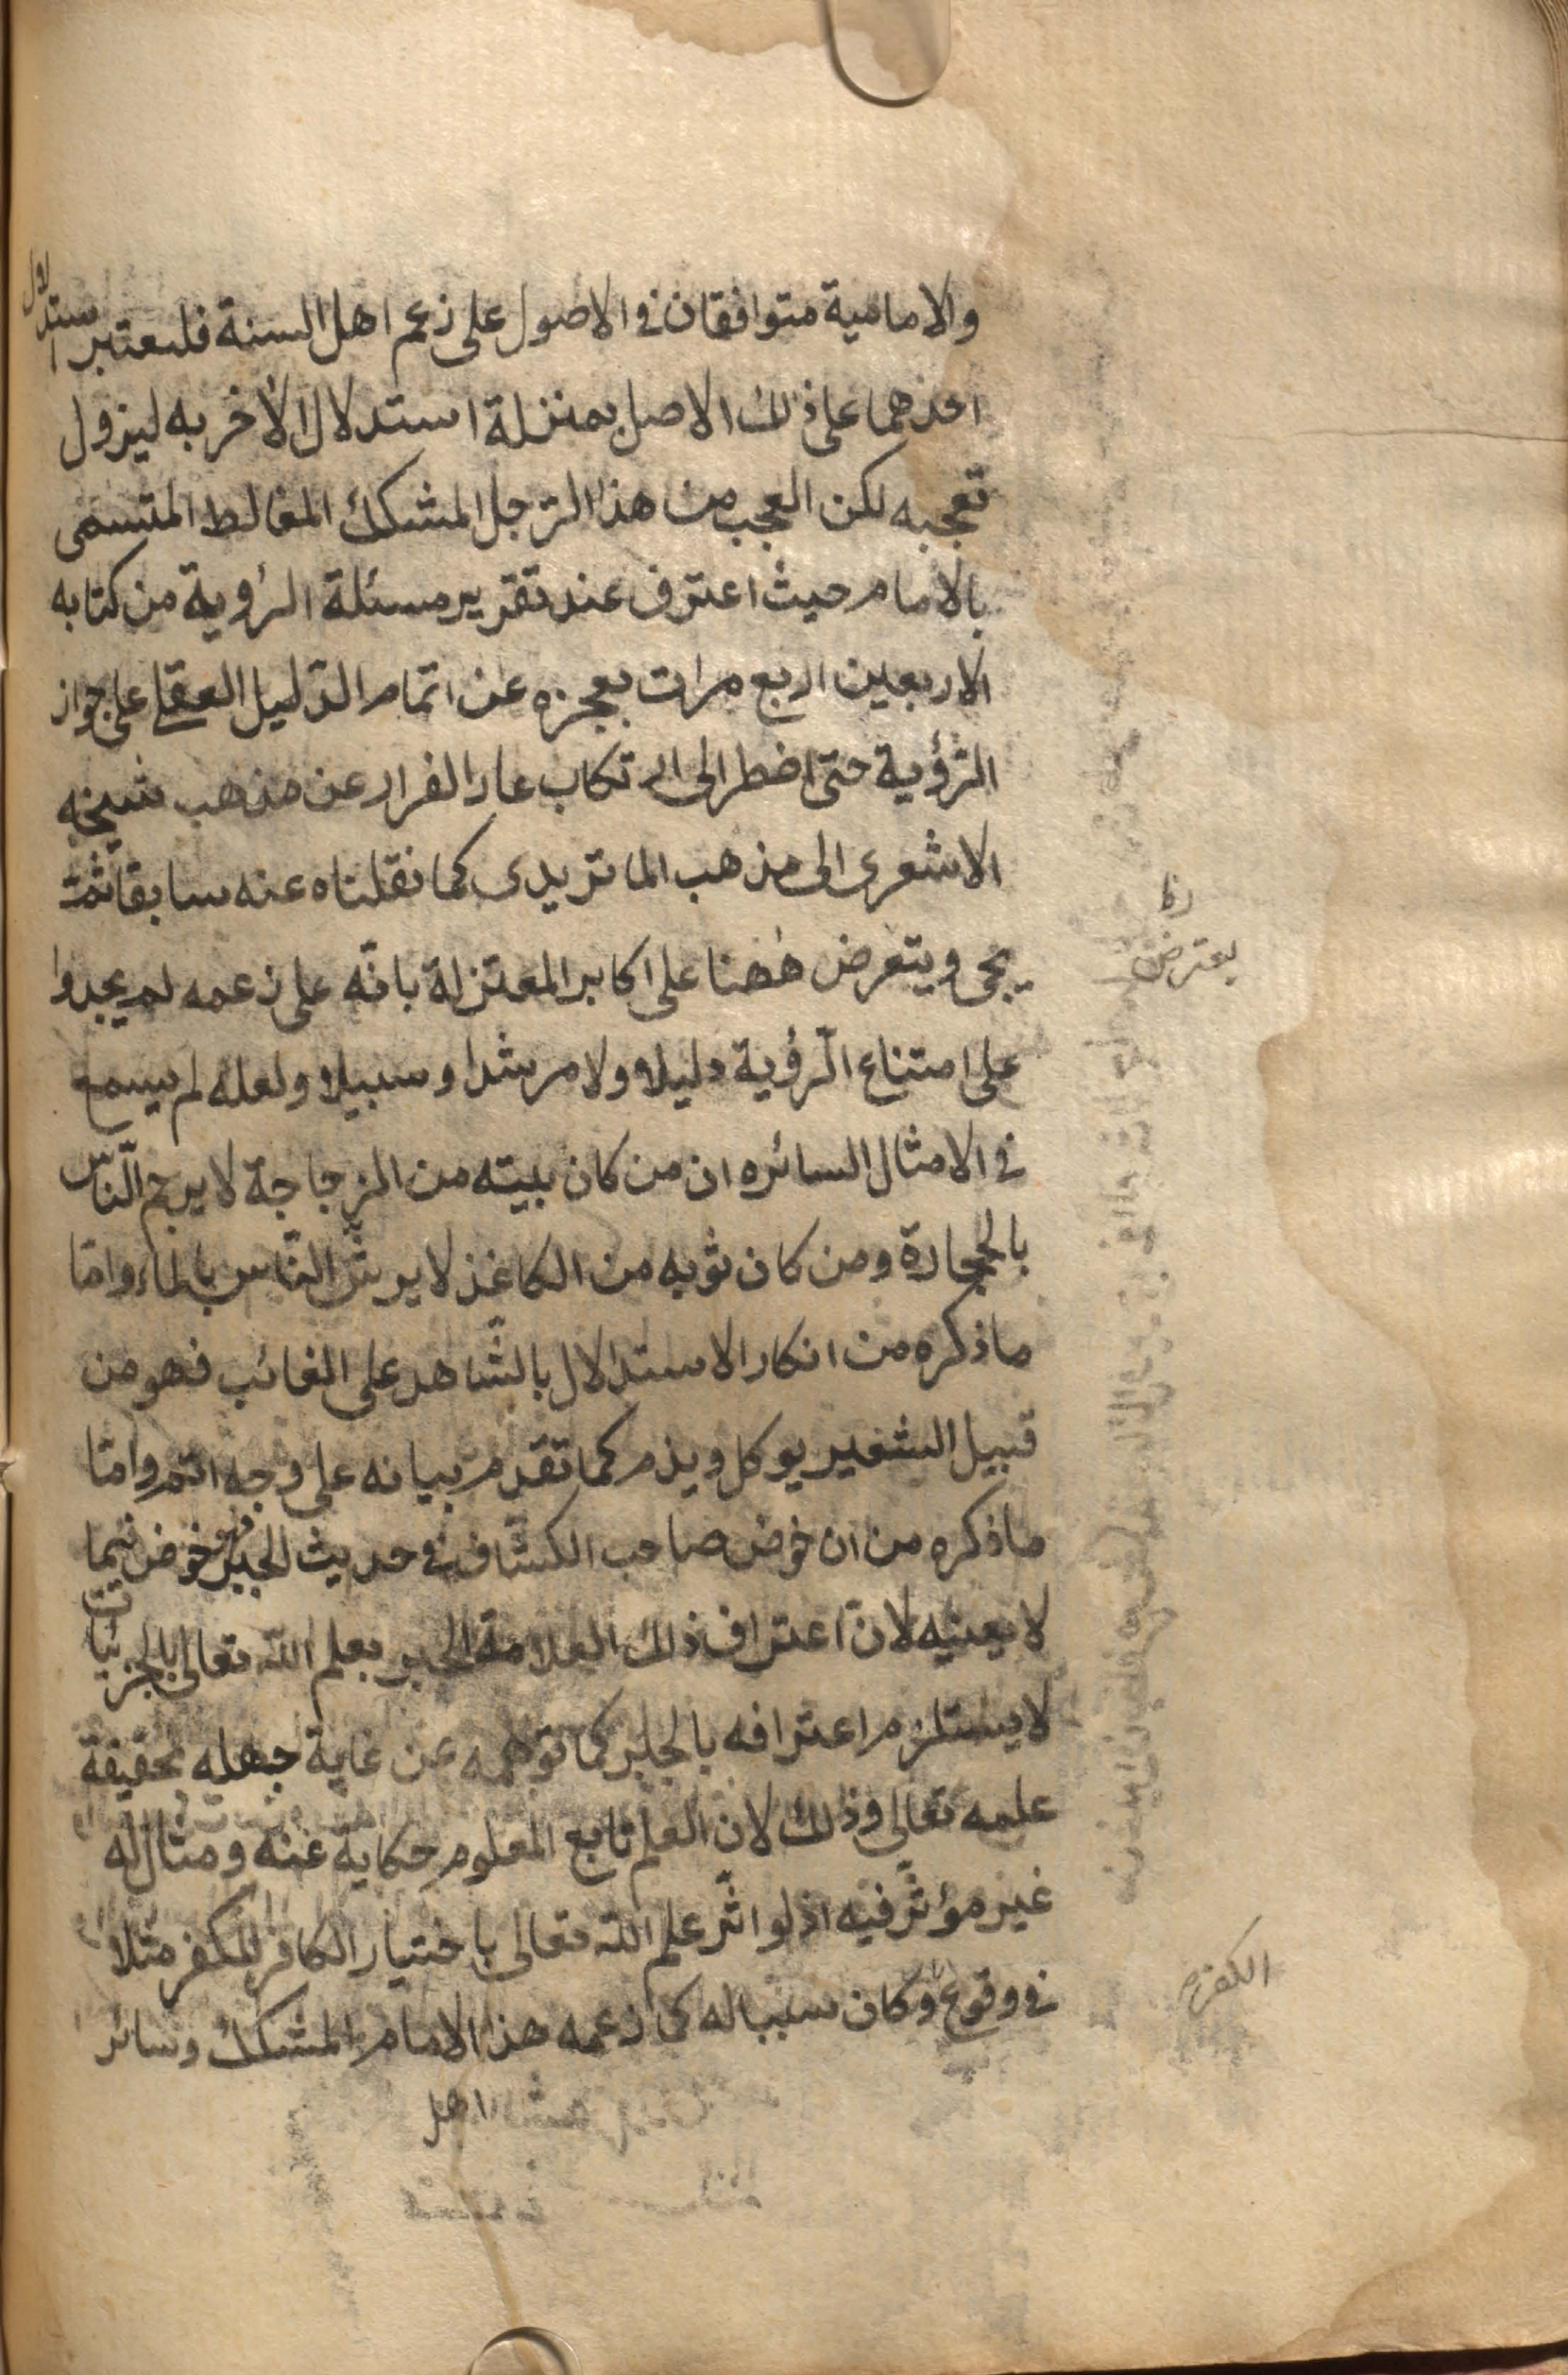 والامامية متوافقان في الاصول على زعم اهل السنة فليعتبر استدلال
احدهما على ذلك الاصل بمنزلة استدلال الاخر به ليزول
تعجبه لكن العجب من هذا الرّجل المشكك المغالط المتسمى
بالامام حيث اعترف عند تقرير مسئلة الرؤية من كتابه
الاربعين اربع مرات بعجزه عن اتمام الدّليل العقلى على جواز
الرّؤية حتى اضطر الى ارتكاب عار الفرار عن مذهب شيخه
الاشعرى الى مذهب الماتريدى كما نقلناه عنه سابقا ثمّ
يجى ويتعرض هٰهنا على اكابر المعتزلة بانّه على زعمه لم يجدوا
يعترض
على امتناع الرّؤية دليلا ولا مرشدا وسبيلا ولعله لم يسمع
في الامثال السائره ان من كان بيته من الزجاجة لا يرجم النّاس
بالحجارة ومن كان ثوبه من الكاغذ لا يرشّ النّاس بالماء وامّا
ماذكره من انكار الاستدلال بالشّاهد على الغائب فهو من
قبيل الشعير يوكل ويذم كما تقدم بيانه على وجه اتم وامّا
ماذكره من ان خوض صاحب الكشّاف في حديث الجبر فهو خوض فيما
لا يعنيه لانّ اعتراف ذلك العلامة الحبر بعلم اللّه تعالى بالجزئيات
لا يستلزم اعترافه بالجبر كما توهمه عن غاية جهله بحقيقة
علمه تعالى وذلك لان العلم تابع المعلوم حكاية عنه ومثال له
غير مؤثّر فيه اذ لو اثّر علم اللّه تعالى باختيار الكافر للكفر مثلا
في وقوع وكان سببا له كما زعمه هذا الامام المشكك وسائر
الكفر
اهل